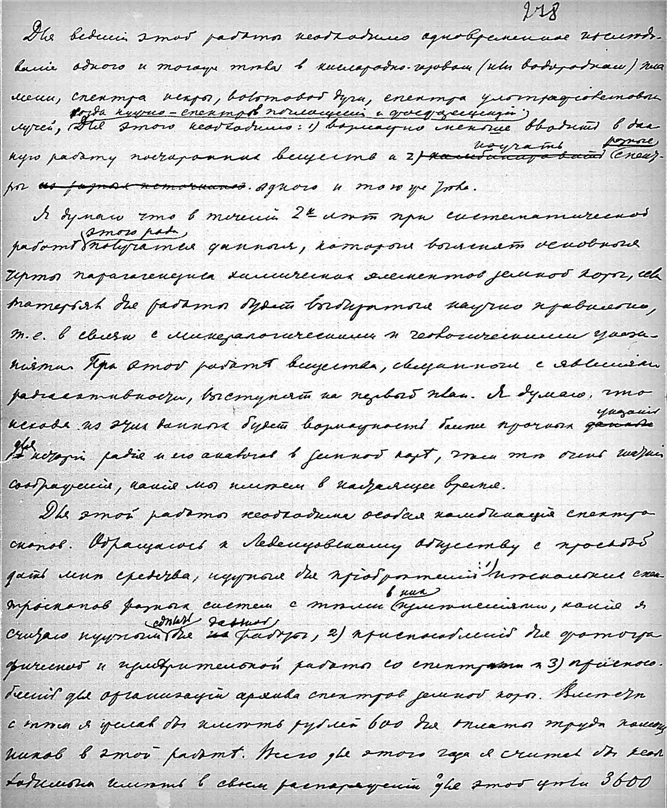 218
Для ведения этой работы необходимо одновременное изследо-
ванiе одного и того же тѣла в кислородно-газовом (или водородном) пла
мени, спектра искры, вольтовой дуги, спектра ультрафiолетовых
когда нужно - спектров поглощенiя и фосфоресценцiи
лучей, Для этого необходимо: 1) возможно меньше вводить в дан
ную работу посторонних веществ и 2) комбинировать изучать разные спект-
ры из разных источников одного и того же тѣла.
Я думаю что в теченiи 2х лѣт при систематической
работѣ этого рода получатся данныя, которыя выяснят основныя
черты парагенезиса химических элементов земной коры, если
матерьял для работы будет выбираться научно правильно,
т.е. в связи с минералогическими и геологическими
При этой работѣ вещества, связанныя с явленiями
радiоактивности, выступят на первый план. Я думаю, что
исходя из этих данных будет возможность более прочных данных указанiй
для исторiи радiя и его аналогов в земной корѣ, чѣм тѣ очень шаткiя
соображенiя, какiя мы имѣем в настоящее время.
Для этой работы необходима особая комбинацiя спектро
скопов. Обращаюсь к Леденцовскому обществу с просьбой
дать мнѣ средства, нужныя для прiобрѣтенiя: 1) нѣскольких спек
троскопов разных систем с тѣми в них измѣненiями, какiя я
считаю нужным сдѣлать для данной работы, 2) приспособленiй для фотогра
фической и измѣрительной работы со спектрами и 3) приспосо-
бленiй для организацiи архива спектров земной коры. Вмѣстѣ
с тѣм я желал бы имѣть рублей 600 для оплаты труда помощ
ников в этой работѣ. Всего для этого года я считал бы необ
ходимым имѣть в своем распоряженiи для этой цѣли 3600